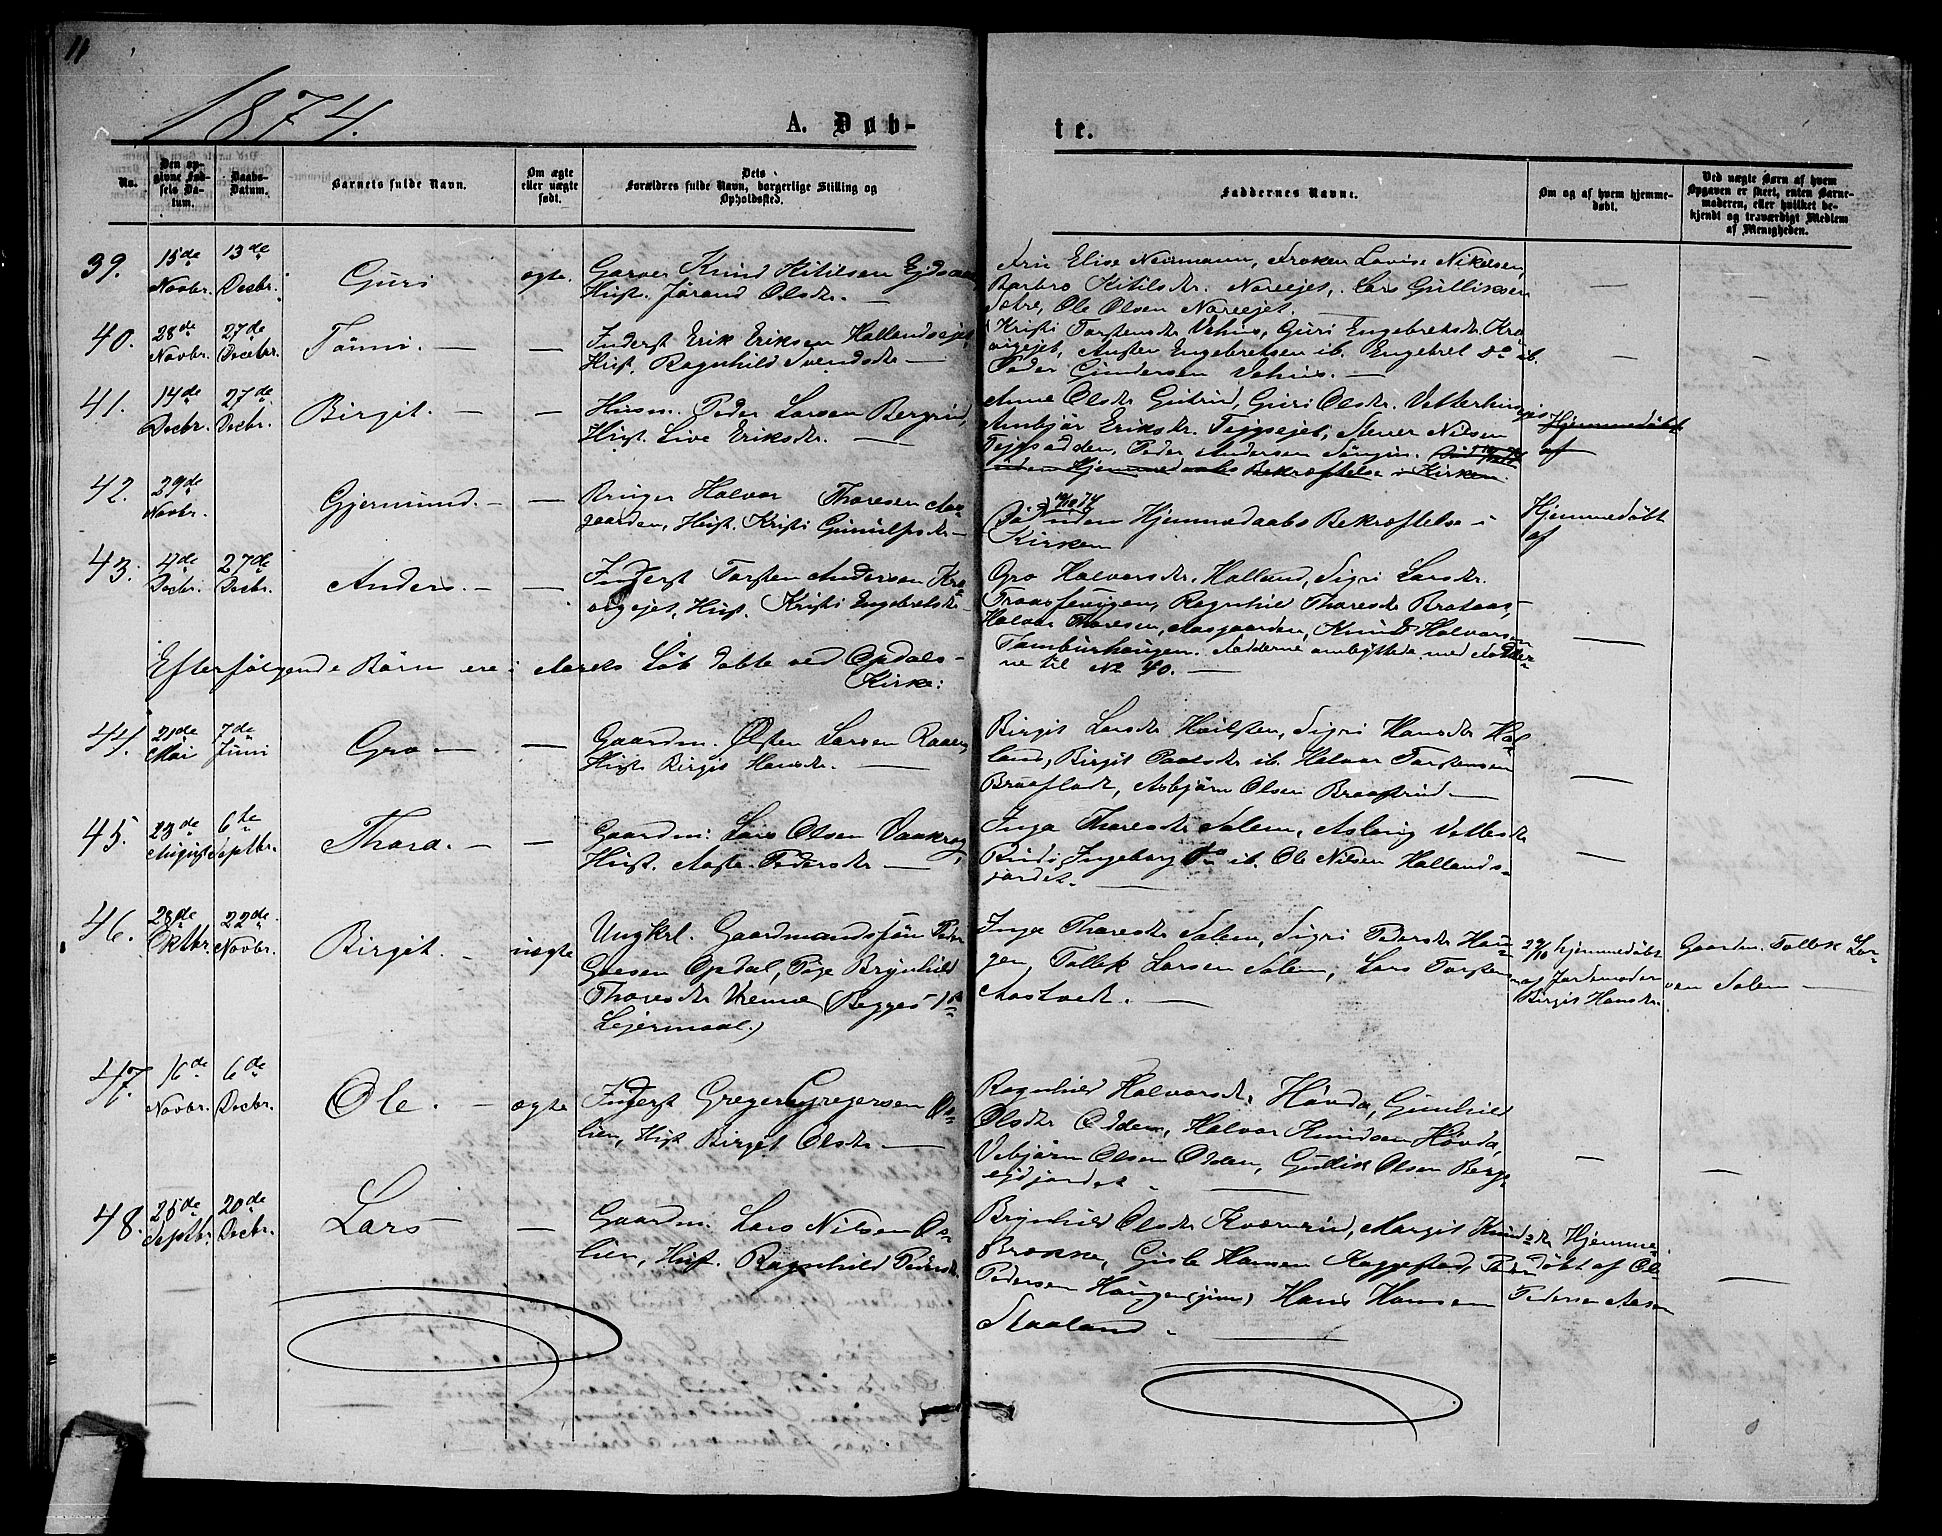 11
1874.
A. Døb-
te.
No.
Den op-
givne Fød-
sels Da-
tum.
Daabs-
Datum.
Barnets fulde Navn.
Om ægte
eller uægte
født.
Dets
Forældres fulde Navn, borgerlige Stilling og
Opholdssted.
Faddernes Navne.
Om og af hvem hjemme-
døbt.
Ved uægte Børn af hvem
Opgaven er skeet, enten Barne-
moderen, eller hvilket be-
kjendt og troværdigt Medlem
af Menigheden.
39.
15de
Novbr.
13de
Decbr.
Guri
ægte.
Garver Knud Kitilsen
Hust. Jørand Olsdtr. —
Fru Elise Neumann, Frøken Lovise Nikelsen,
Barbro Kitilsdtr. Noreejet, Lars Gulliksen
Ole Olsen Noreejet.
40.
28de
Novbr.
27de
Decebr.
Tønni. —
—
Inderst Erik Eriksen Hallandsejet,
Hust. Ragnhild Svendsdtr —
Kristi Torstensdtr Vehus, Guri Engebretsdtr Kra-
vigejet, Austen Engebretsen ib. Engebret do ib.
Peder Gundersen Vehus. —
41.
14de
Decbr.
27de
Decbr.
Birgit. —
—
Husm. Peder Larsen Bergrud,
Hust. Live Eriksdtr. —
Anne Olsdtr Gutrud, Guri Olsdtr.
Anbjør Eriksdtr. Tejgsejet, Stener Nilsen
Peder Andersen
uden Hjemmedaabs Bekræftelse i Kirken.
Hjemmedøbt
af
42.
29de
Novbr.
Gjermund. —
—
Bruger Halvor Thoresen Aas-
gaarden, Hust. Kristi Gunulfsdtr —
Død uden Hjemmedaabs Bekræftelse i
Kirken
Hjemmedøbt
af
43.
4de
Decbr.
27de
Decbr.
Anders. —
—
Inderst Torsten Andersen Kra-
vigejet, Hust. Kristi Engebretsdtr —
Gro Halvorsdtr. Halland, Sigri Larsdtr.
Ragnhild Thoresdtr Brataas,
Halvor Thoresen, Aasgaarden, Knud Halvorsen
Tamburhaugen. Fadderne ombyttede med Fadder-
ne til No 40. —
Efterfølgende Børn ere i Aarets Løb døbte ved Opdals-
Kirke:
44.
21de
Mai
7de
Juni
Gro —
—
Gaardm. Østen Larsen Raaen,
Hust Birgit Hansdtr. —
Birgit Larsdtr Sigri Hansdtr Hal-
land, Birgit Paalsdtr ib. Halvor Torstensen
Braafladt, Asbjørn Olsen Braaflad —
45.
23de
August
6te
Septbr.
Thora. —
—
Gaardm. Lars Olsen
Hust. Aaste Pedersdtr —
Inga Thoresdtr Salem, Aslaug
Ingeborg do ib. Ole Nilsen Hallands-
jordet. —
46.
28de
Oktbr.
22de
Novbr.
Birgit. —
uægte
Ungkrl. Gaardmandssøn Peder
Opdal, Pige Brynhild
Thoresdtr (Begges 1ste
Lejermaal.)
Inga Thoresdtr Salem, Sigri Pedersdtr Hau-
gen, Tollek Larsen Salem, Lars Torstens
Aastvedt. —
29/10 hjemmedøbt
af Jordemoder
Birgit Hansdtr.
Gaardm. Tollek Lar-
sen Salem —
47.
16de
Novbr.
6de
Decbr.
Ole. —
ægte
Inderst Greger Gregersen Øe-
lien, Hust Birgit Olsdtr —
Ragnhild Halvorsdtr Høvda, Gunhild
Olsdtr Odden, Halvor Knudsen Høvda,
Vebjørn Olsen Odden, Gullik Olsen Berg-
ejdjordet —
48.
25de
Septbr.
20de
Decbr.
Lars —
—
Gaardm. Lars Nilsen Øe-
lien, Hust. Ragnhild Pedersdtr.
Brynhild Olsdtr Kværnrud, Margit Knudsdtr
Brække, Gisle Hansen
Pedersen Haugen (jun) Hans Hansen
Staaland —
Hjemme-
døbt af Ole
Pedersen Aasen
—